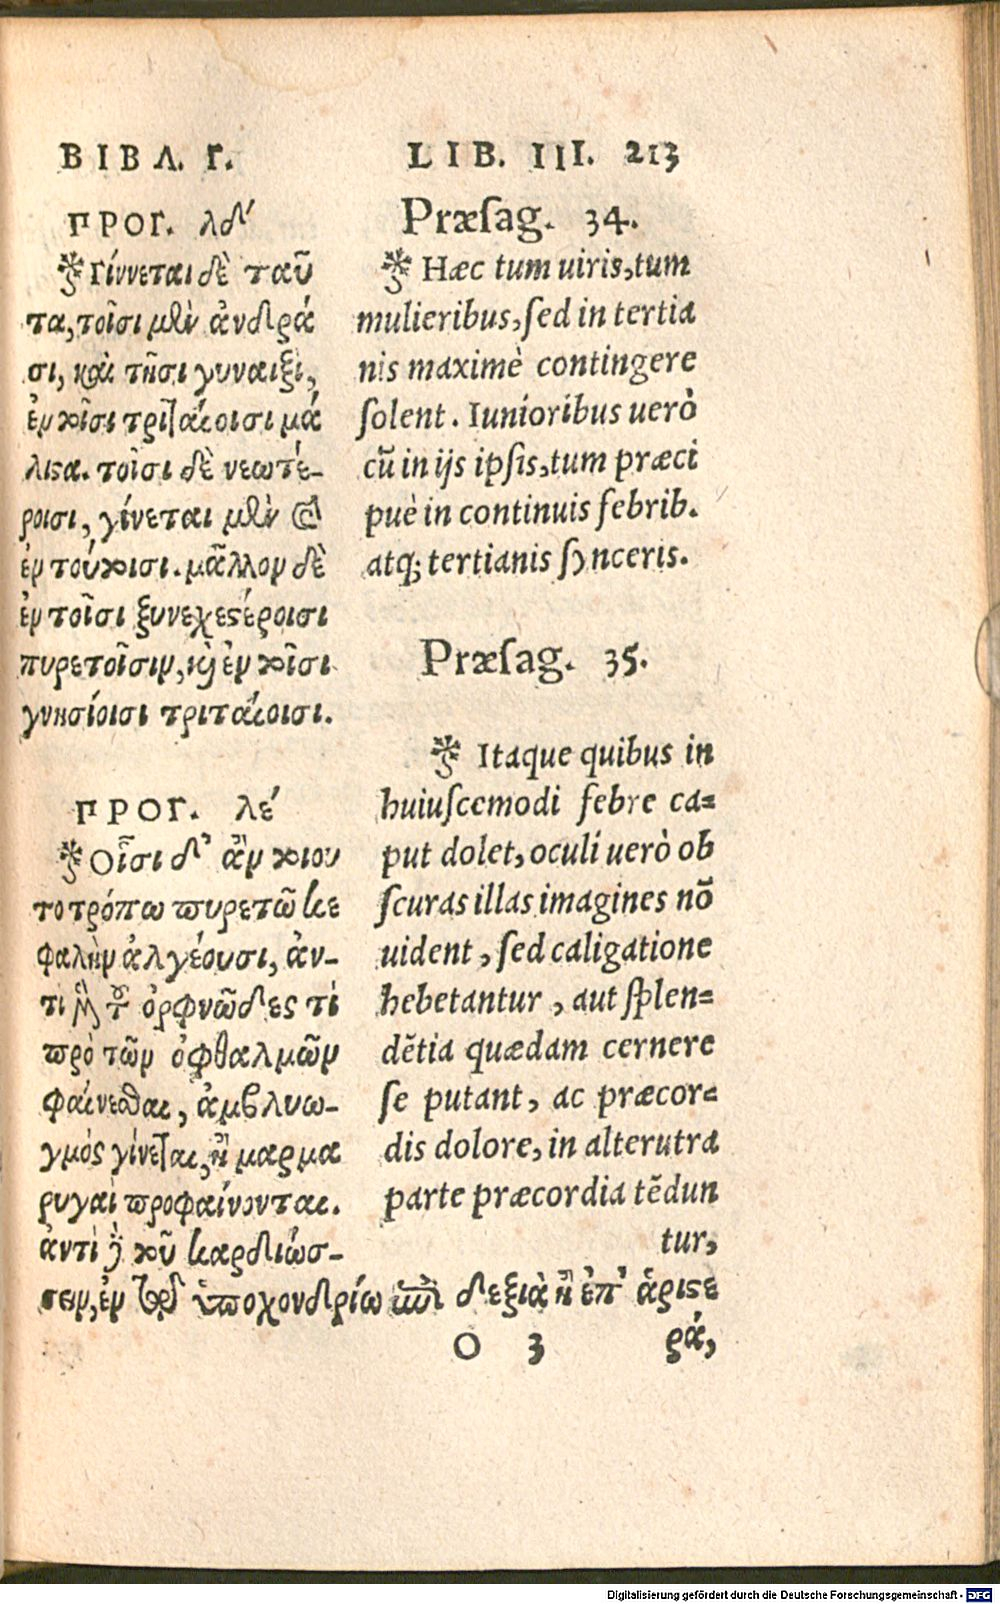 ΒΙΒΛ. Γ.
ΠΡΟΓ. λδ´
Γίννεται δὲ ταῦ
τα, τοῖσι μὲν ἀνδρά
σι, καὶ τῆσι γυναιξὶ,
ἐν τοῖσι τριταίοισι μά
λιστα. τοῖσι δὲ νεωτέ-
ροισι, γίνεται μὲν καὶ
ἐν τούτοισι. μᾶλλον δὲ
ἐν τοῖσι ξυνεχεστέροισι
πυρετοῖσιν, καὶ ἐν τοῖσι
γνησίοισι τριταίοισι.
ΠΡΟΓ. λέ
Οἷσι δ' ἂν τοιού
το τρόπω πυρετῶ κε
φαλὴν ἀλγέουσι, ἀν-
τὶ δὲ τοῦ ὀρφνῶδες τὶ
πρὸ τῶν ὀφθαλμῶν
φαίνεσθαι, ἀμβλυω-
γμὸς γίνεται, ἢ μαρμα
ρυγαὶ προφαίνονται.
ἀντὶ δὲ τοῦ καρδιώσ-
σειν, ἐν τῷ ὑποχονδρίω ἐπὶ δεξιὰ ἢ ἐπ' ἀριστε
ρά,
LIB. III. 213
Præsag. 34.
Hæc tum uiris, tum
mulieribus, sed in tertia
nis maximè contingere
solent. Iunioribus uerò
cū in ijs ipsis, tum præci
puè in continuis febrib.
atq; tertianis synceris.
Præsag. 35.
Itaque quibus in
huiuscemodi febre ca=
put dolet, oculi uerò ob
scuras illas imagines nō
uident, sed caligatione
hebetantur, aut splen=
dētia quædam cernere
se putant, ac præcor=
dis dolore, in alterutra
parte præcordia tēdun
tur,
O 3
Digitalisierung gefördert durch die Deutsche Forschungsgemeinschaft - DFG